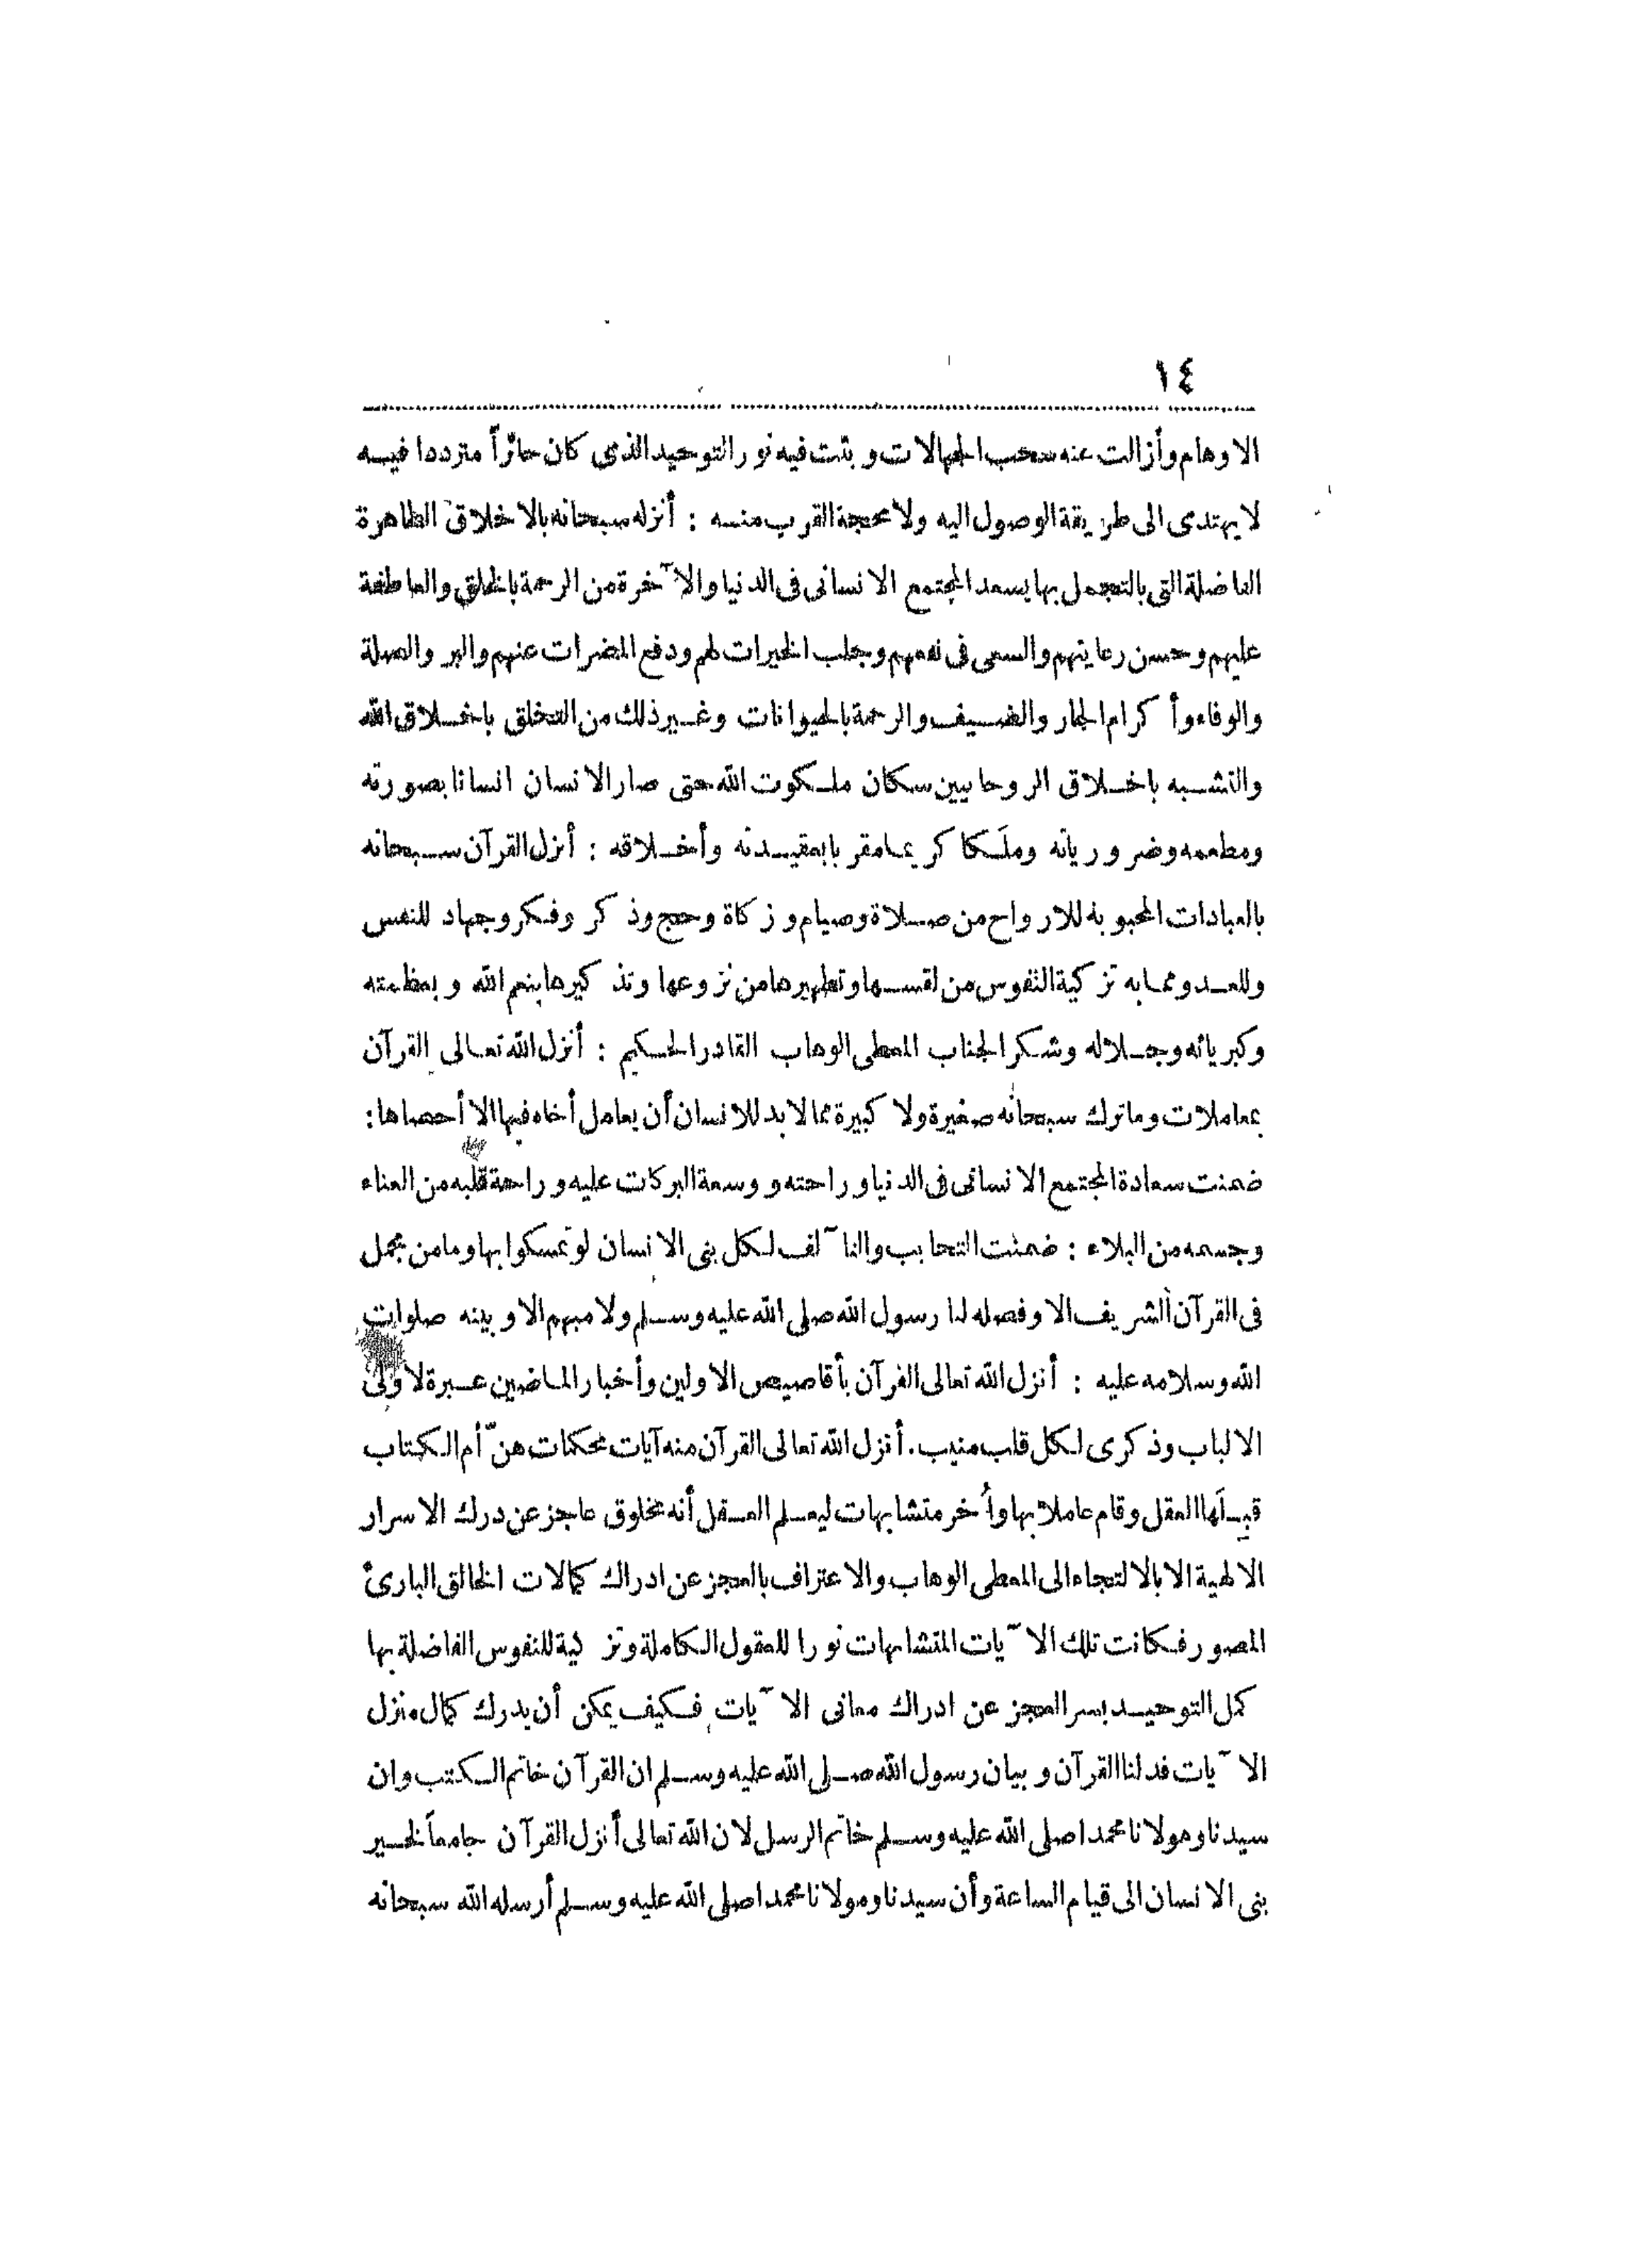 ١٤
الاوهام وأزالت عنه سحب الجهالات وبثت فيه نور التوحيد الذى كان حائراً مترددا فيه
لا يهتدى الى طريقة الوصول اليه ولا محجة القرب منه : أنزله سبحانه بالاخلاق الطاهرة
الفاضلة التى بالتجمل بها يسعد المجتمع الانسانى فى الدنيا والآخرة من الرحمة بالخلق والعاطفة
عليهم وحسن رعايتهم والسعى فى نفعهم وجلب الخيرات لهم ودفع المضرات عنهم والبر والصلة
والوفاء وأكرام الجار والضيف والرحمة بالحيوانات وغير ذلك من التخلق باخلاق الله
والتشبه باخلاق الروحانيين سكان ملكوت الله حتى صار الانسان انسانا بصورته
ومطعمه وضرورياته وملَكا كريما مقربا بعقيدته وأخلاقه : أنزل القرآن سبحانه
بالعبادات المحبوبة للارواح من صلاة وصيام وزكاة وحج وذكر وفكر وجهاد للنفس
وللعدو ومما به تزكية النفوس من لقسها وتطهيرها من نزوعها وتذكيرها بنعم الله وبعظمته
وكبريائه وجلاله وشكر الجناب المعطى الوهاب القادر الحكيم : أنزل الله تعالى القرآن
بمعاملات وما ترك سبحانه صغيرة ولا كبيرة مما لا بد للانسان أن يعامل أخاه فيها الا أحصاها:
ضمنت سعادة المجتمع الانسانى فى الدنيا وراحته ووسعة البركات عليه وراحة قلبه من العناء
وجسمه من البلاء : ضمنت التحابب والتآلف لكل بنى الانسان لو تمسكوا بها وما من مجمل
فى القرآن الشريف الا وفصله لنا رسول الله صلى الله عليه وسلم ولا مبهم الا وبينه صلوات
الله وسلامه عليه : أنزل الله تعالى القرآن بأقاصيص الاولين وأخبار الماضيين عبرة لاولى
الالباب وذكرى لكل قلب منيب. أنزل الله تعالى القرآن منه آيات محكمات هنّ أم الكتاب
قبلَها العقل وقام عاملا بها وأُخر متشابهات ليعلم العقل أنه مخلوق عاجز عن درك الاسرار
الالهية الا بالالتجاء الى المعطى الوهاب والاعتراف بالعجز عن ادراك كمالات الخالق البارئ
المصور فكانت تلك الآيات المتشابهات نورا للعقول الكاملة وتزكية للنفوس الفاضلة بها
كمل التوحيد بسر العجز عن ادراك معانى الآيات فكيف يمكن أن يدرك كمال منزل
الآيات فدلنا القرآن وبيان رسول الله صلى الله عليه وسلم ان القرآن خاتم الكتب وان
سيدنا ومولانا محمدا صلى الله عليه وسلم خاتم الرسل لان الله تعالى أنزل القرآن جامعاً لخير
بنى الانسان الى قيام الساعة وأن سيدنا ومولانا محمدا صلى الله عليه وسلم أرسله الله سبحانه